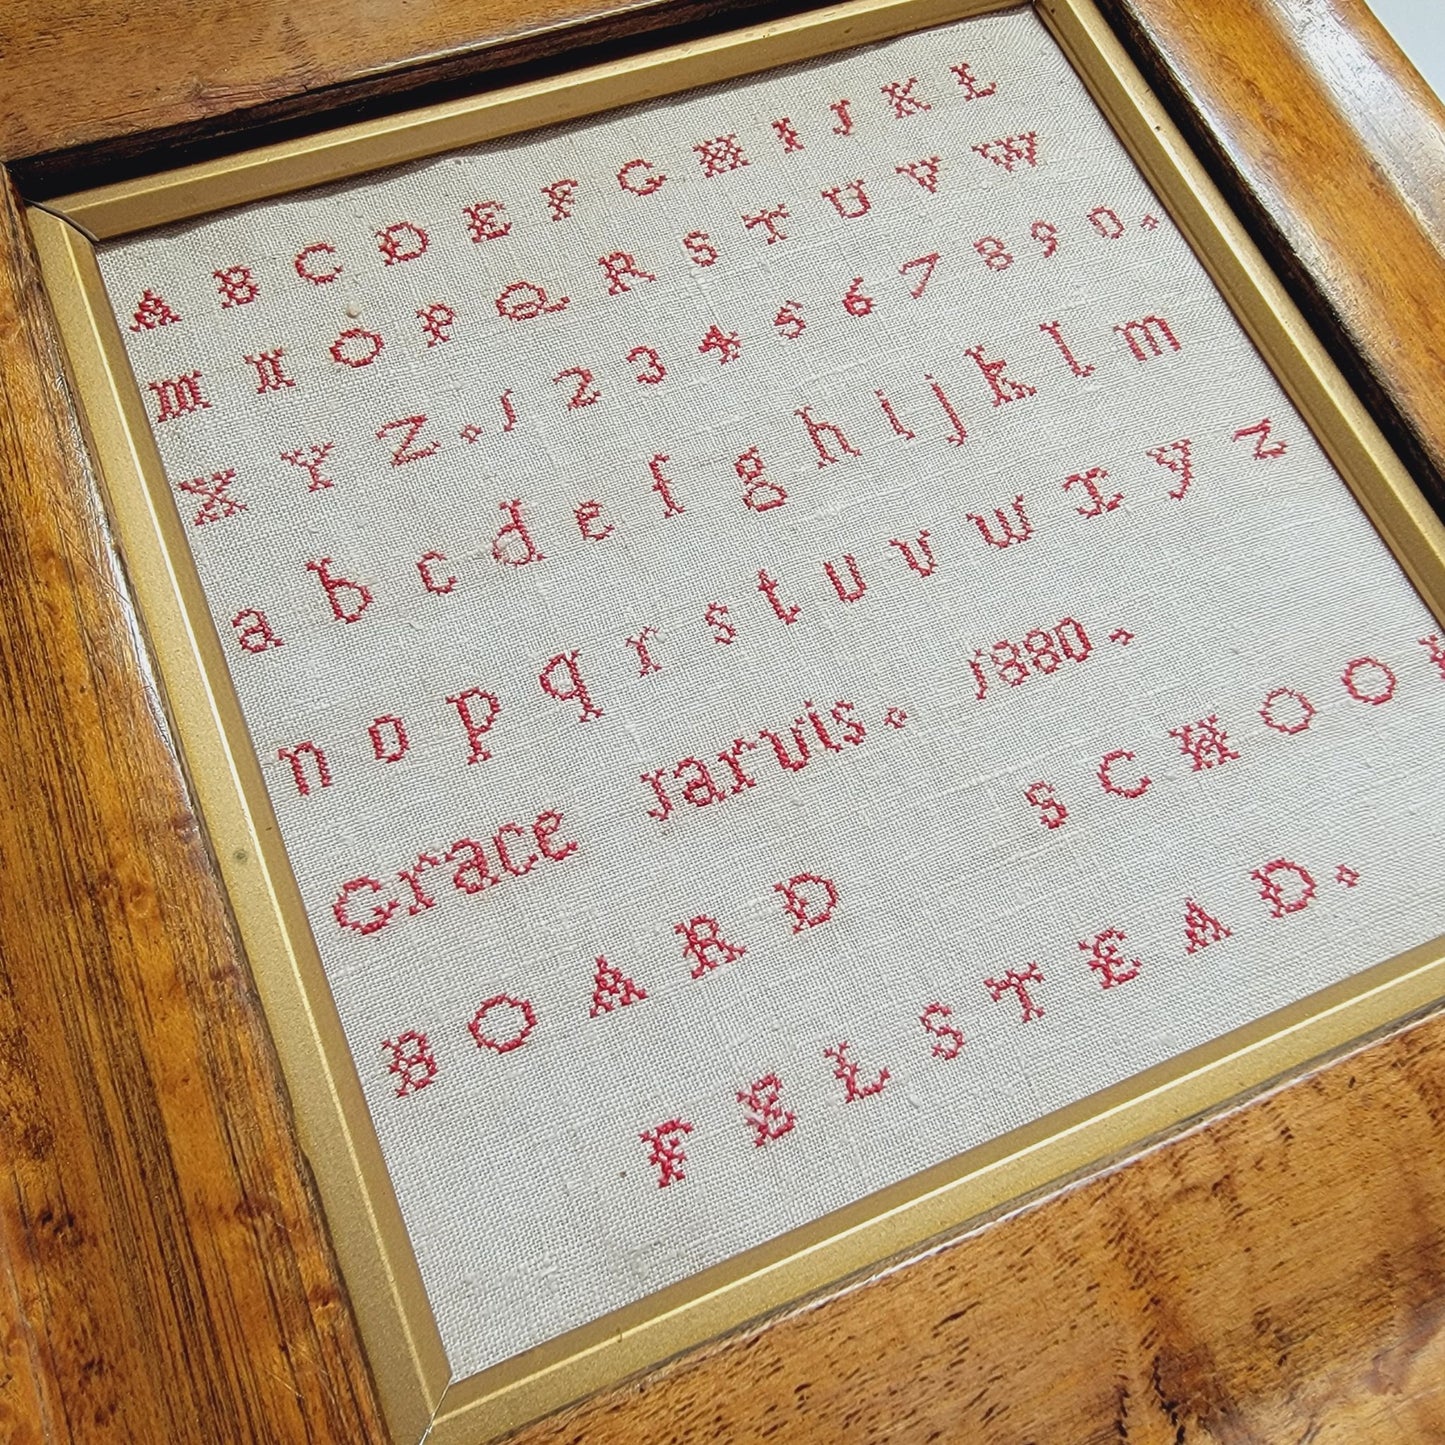 A B C D E F G H I J K L
M N O P Q R S T U V W
X Y Z . 1 2 3 4 5 6 7 8 9 0 .
a b c d e f g h i j k l m
n o p q r s t u v w x y z
Grace Jarvis. 1880.
BOARD SCHOOL
FELSTEAD.